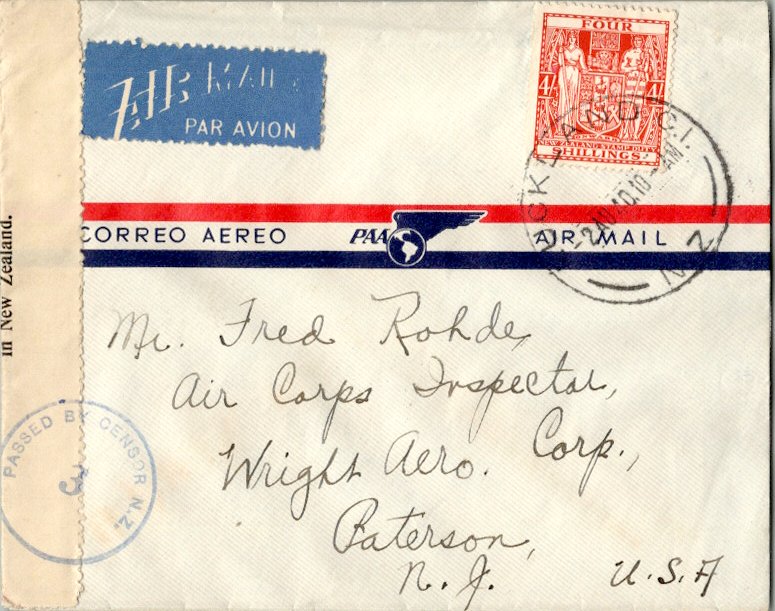 AIR MAIL
PAR AVION
FOUR
4/- 4/-
NEW ZEALAND STAMP DUTY
SHILLINGS
AUCKLAND C.1.
N.Z
CORREO AEREO PAA AIR MAIL
in New Zealand.
Mr. Fred Rohde,
Air Corps Inspector,
Wright Aero. Corp.,
Paterson,
N. J. U.S.A
PASSED BY CENSOR N.Z.
3